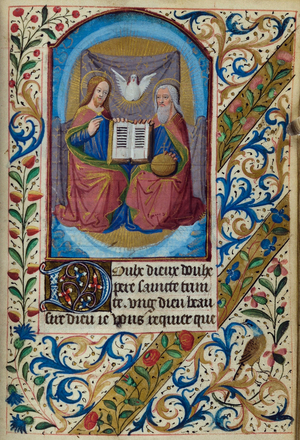 Doulx dieux doulx
pere saincte trini
te. ung dieu beau
sire dieu ie vous requier que